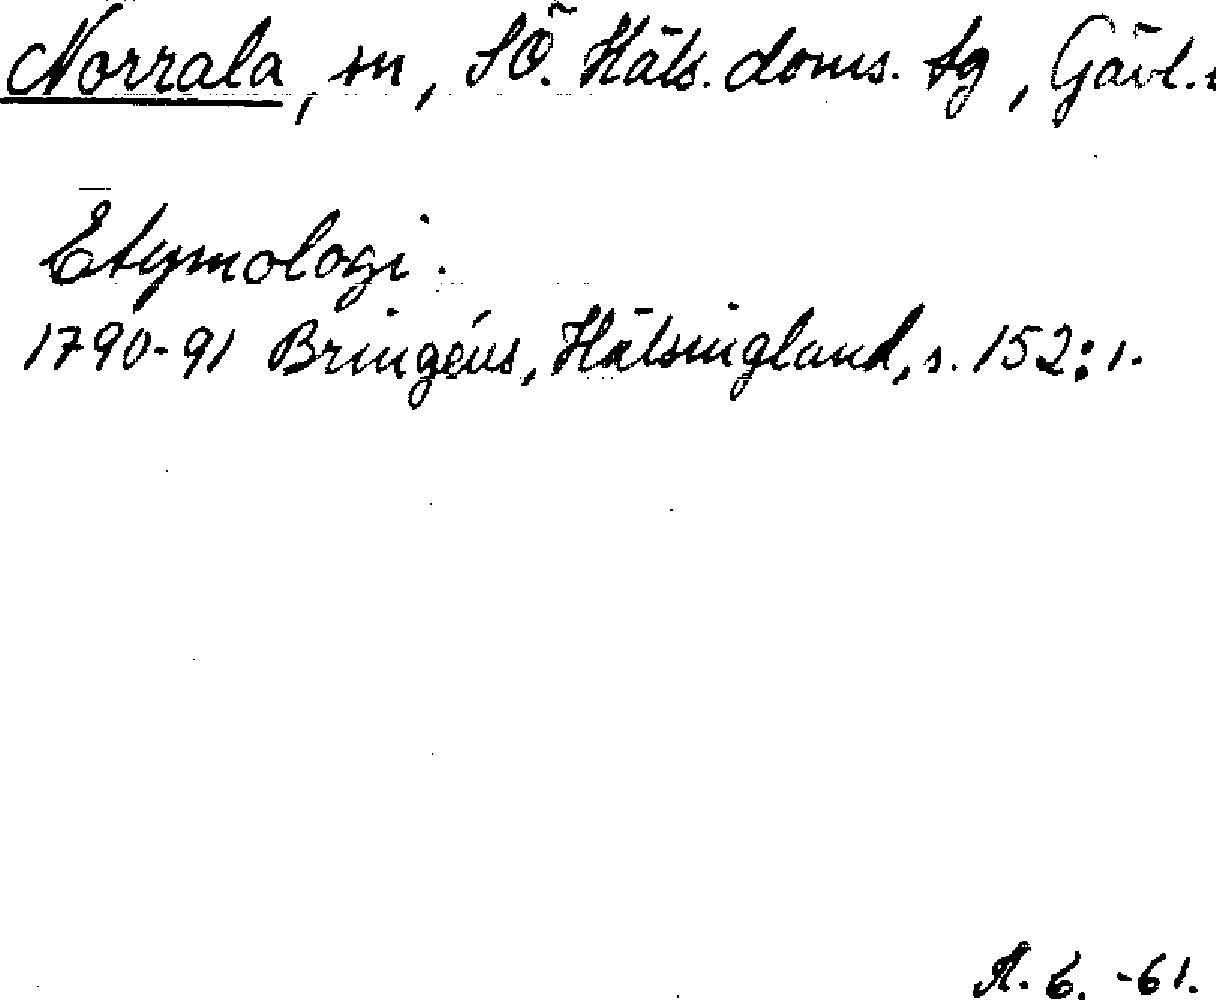 Norrala, sn, SÖ. Häls. doms. tg, Gävl.
Etymologi.
1790-91 Bringéus, Hälsingland, s. 152:1.
A. E. -61.